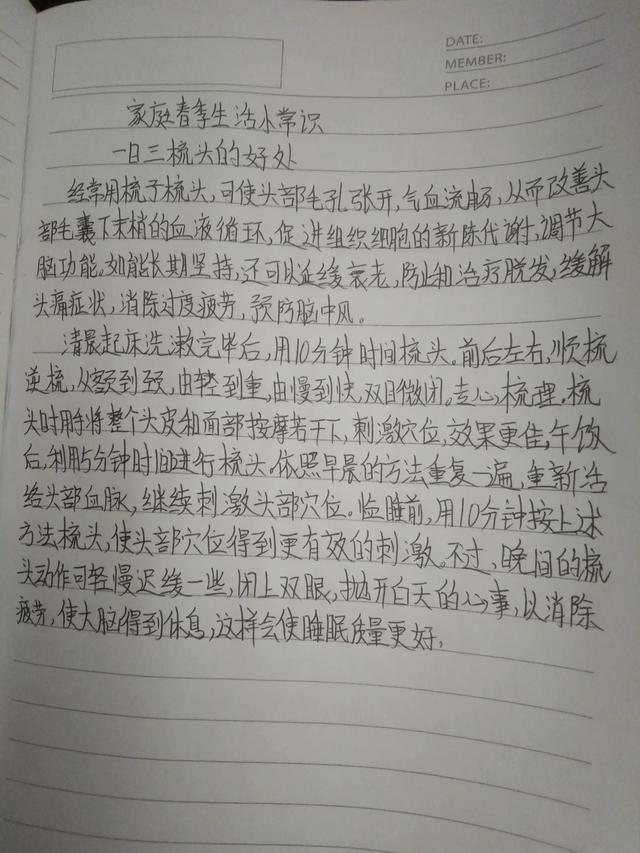 DATE:
MEMBER:
PLACE:
家庭春季生活小常识
一日三梳头的好处
经常用梳子梳头,可使头部毛孔张开,气血流畅,从而改善头
部毛囊下末梢的血液循环,促进组织细胞的新陈代谢,调节大
脑功能。如能长期坚持,还可以延缓衰老,防止和治疗脱发,缓解
头痛症状,消除过度疲劳,预防脑中风。
清晨起床洗漱完毕后,用10分钟时间梳头。前后左右,顺梳
逆梳,从额到颈,由轻到重,由慢到快,双目微闭。专心梳理。梳
头时用手将整个头皮和面部按摩若干下,刺激穴位,效果更佳,午饭
后,利用5分钟时间进行梳头。依照早晨的方法重复一遍,重新活
络头部血脉,继续刺激头部穴位。临睡前,用10分钟按上述
方法梳头,使头部穴位得到更有效的刺激。不过、晚间的梳
头动作可轻慢迟缓一些,闭上双眼,抛开白天的心事,以消除
疲劳,使大脑得到休息,这样会使睡眠质量更好,